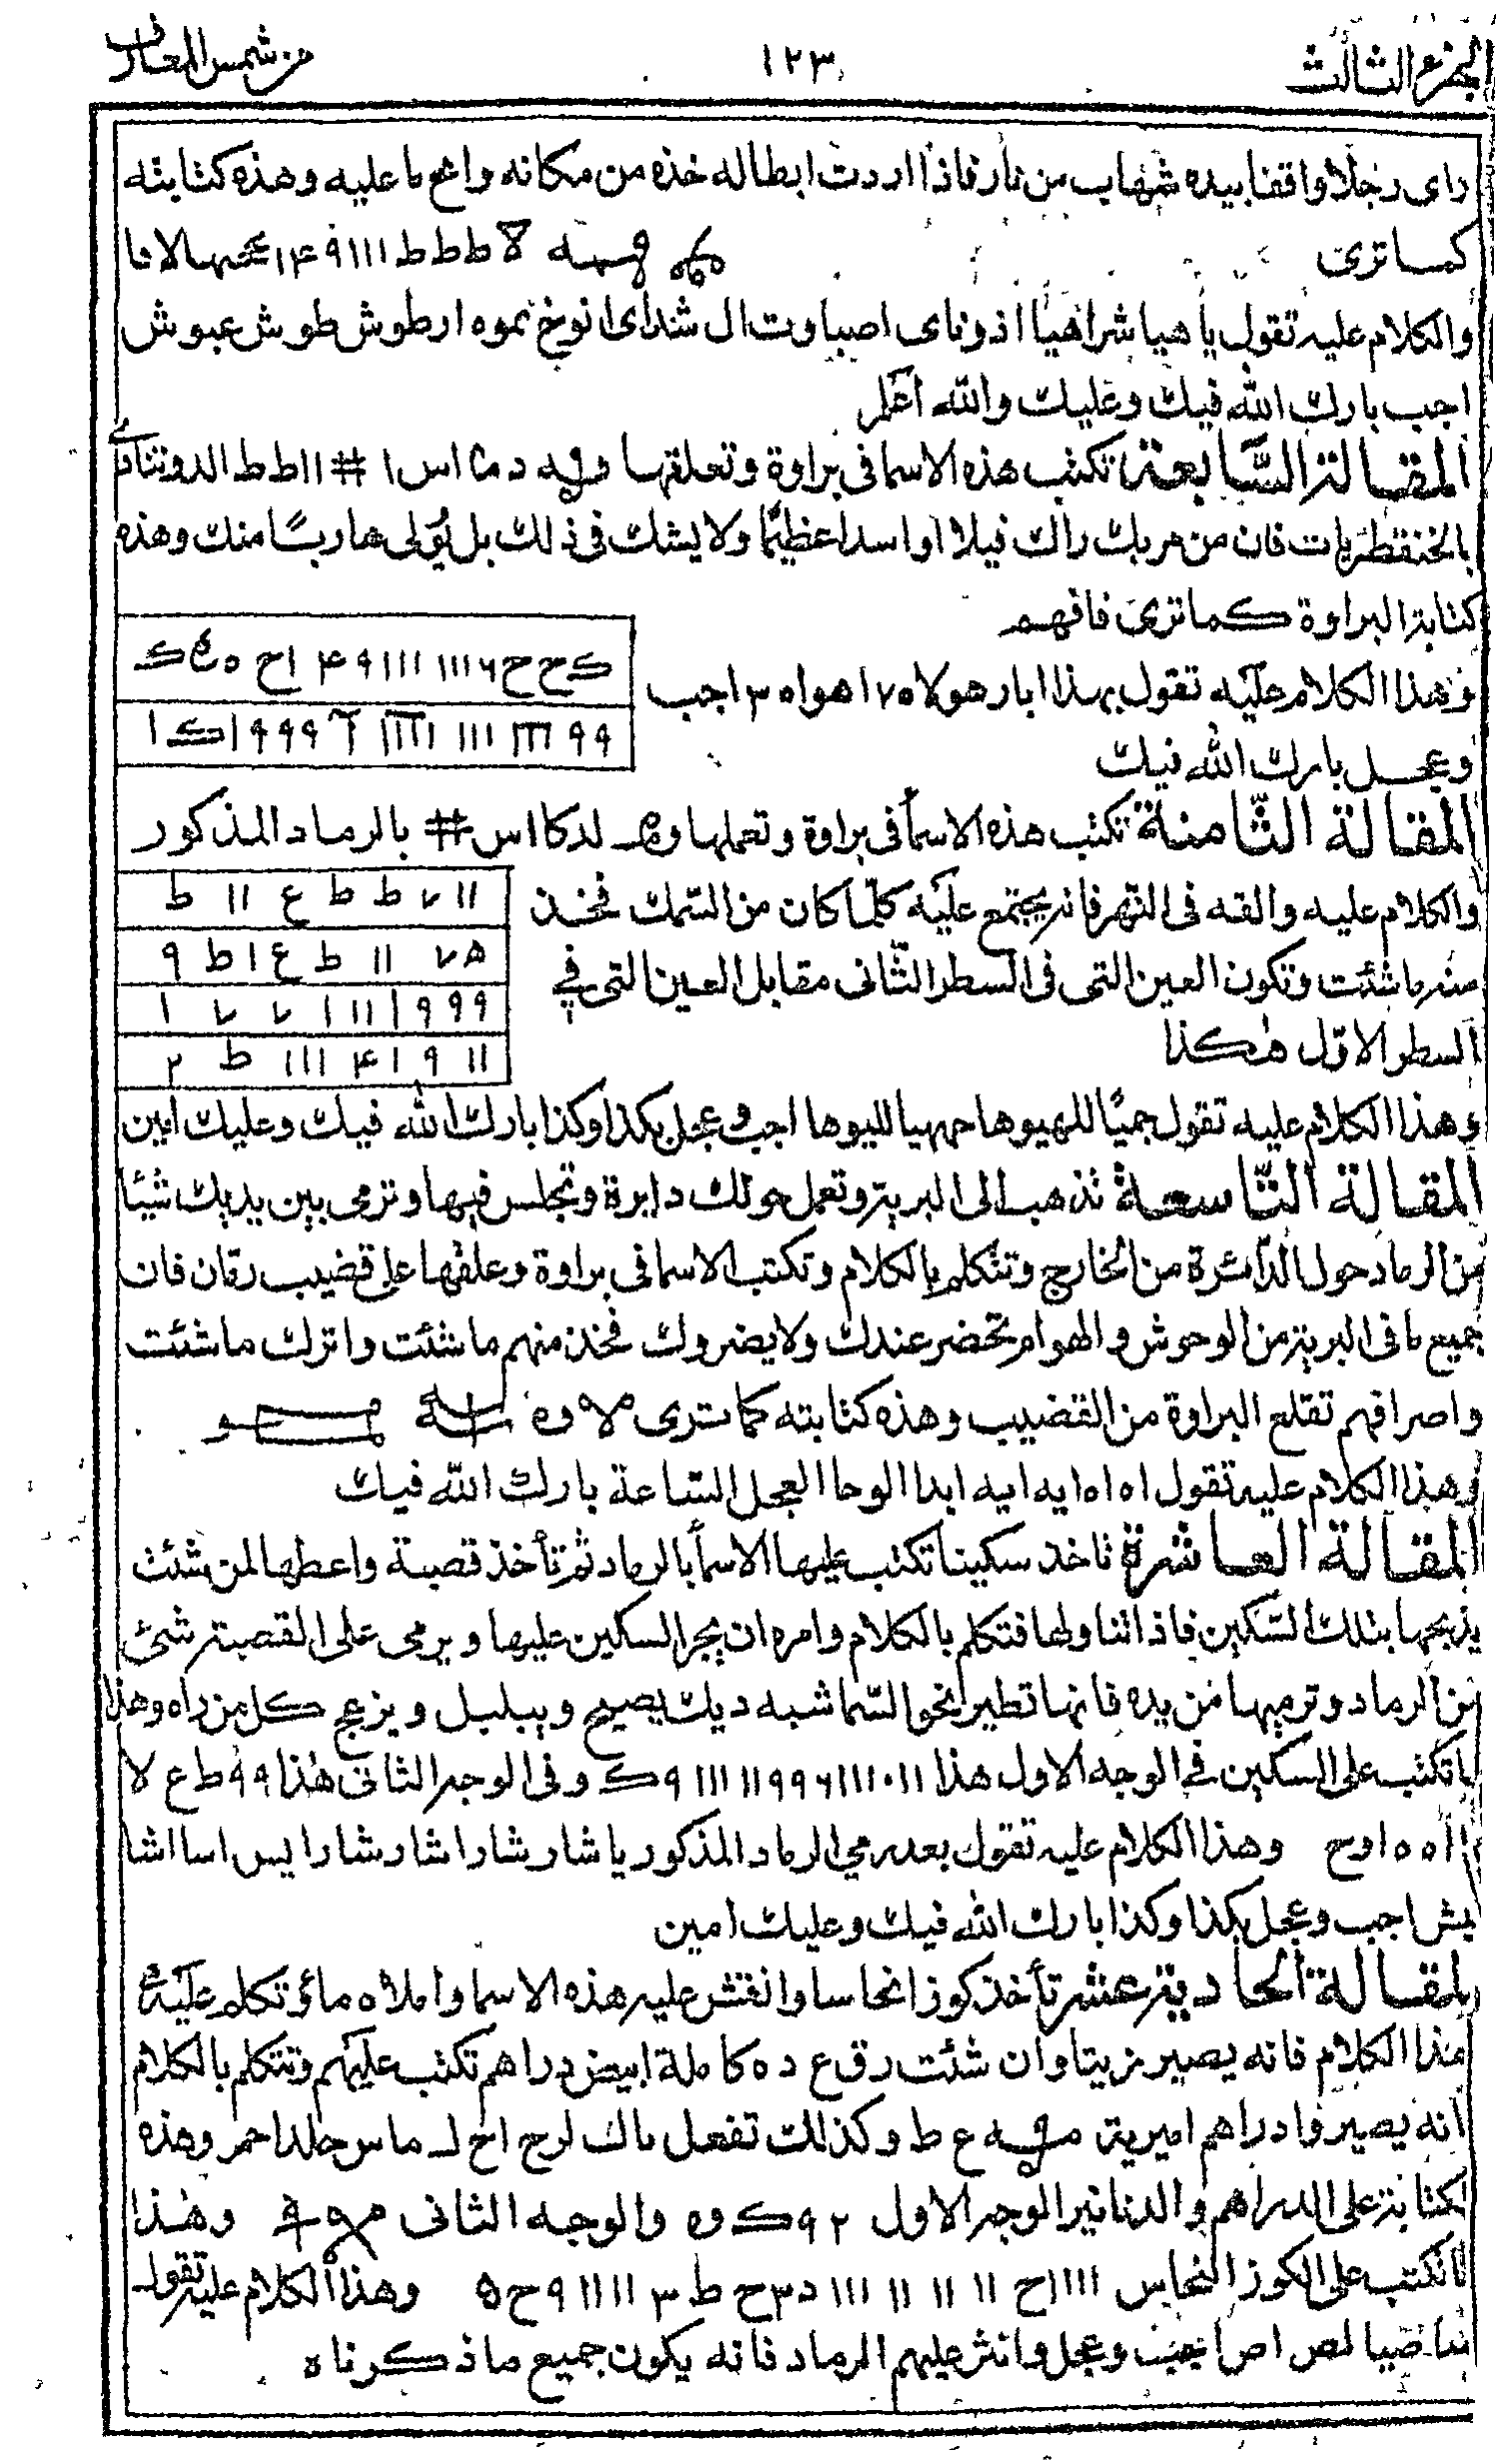 الجزء الثالث
١٢٣
من شمس المعارف
راى رجلا واقفا بيده شهاب من نار فاذا اردت ابطاله خذه من مكانه وامح ما عليه وهذه كتابته
كما ترى ططط ااا ٩
والكلام عليه تقول ياهيا شراهيا اذوناى اصباوت ال شداى انوخ نموه ارطوش طوش عبوش
اجب بارك الله فيك وعليك والله اعلم
المقالة السابعة تكتب هذه الاسما فى براوة وتعلقها # ااطط
فان من هربك راك فيلا او اسدا عظيما ولا يشك فى ذلك بل يولى هاربا منك وهذه
كتابة البراوة كما ترى فافهم
ك ح ح ٦ااا ااا ٩ ۴ اح
٩٩ ااا ٩٩٩ ا ك ا
وهذا الكلام عليه تقول بهذا ابار هولاه ٧ اهواه ٣ اجب
وعجل بارك الله فيك
المقالة الثامنة تكتب هذه الاسما فى براوة وتعملها # بالرماد المذكور
والكلام عليه والقه فى النهر فانه يجتمع عليه كلما كان من السمك فخذ
منه ما شئت وتكون العين التى فى السطر الثانى مقابل العين التى فى
السطر الاول هكذا
اا ٧ ط ط ع اا ط
ه ٧ اا ط ع ا ط ٩
٩٩٩ ا اا ا ٧ ٧ ا
اا ٩ ا ۴ ااا ط ٢
وهذا الكلام عليه تقول جميا للهيوها حمهيا لليوها اجب وعجل بكذا وكذا بارك الله فيك وعليك امين
المقالة التاسعة تذهب الى البرية وتعمل حولك دايرة وتجلس فيها وترمى بين يديك شيئا
من الرماد حول الدائرة من الخارج وتتكلم بالكلام وتكتب الاسما فى براوة وعلقها على قضيب رمان فان
جميع ما فى البرية من الوحوش والهوام تحضر عندك ولا يضروك فخذ منهم ما شئت واترك ما شئت
واصرافهم تقلع البراوة من القضيب وهذه كتابته كما ترى
وهذا الكلام عليه تقول اه اه ايه ايه ابدا الوحا العجل الساعة بارك الله فيك
المقالة العاشرة تاخذ سكينا تكتب عليها الاسما بالرماد ثم تأخذ قصبة واعطها لمن شئت
يذبحها بتلك السكين فاذا تناولها فتكلم بالكلام وامره ان يجر السكين عليها ويرمى على القصبة شئ
من الرماد وترميها من يده فانها تطير نحو السما شبه ديك يصيح ويبلبل ويزعج كل من راه وهذا
ما تكتب على السكين فى الوجه الاول هذا ١١٠١١١٦٩٩١١ ١١١ ٩ك وفى الوجه الثانى هذا ٩٩ ط ع لا
ااه ه اوح وهذا الكلام عليه تقول بعد رمى الرماد المذكور ياشار شارا شار شارا يس اسا اشا
يش اجب وعجل بكذا وكذا بارك الله فيك وعليك امين
المقالة الحادية عشر تأخذ كوزا نحاسا وانقش عليه هذه الاسما واملاه ماء وتكلم عليه
هذا الكلام فانه يصير زيتا وان شئت رق ع ده كاملة ابيض دراهم تكتب عليهم وتتكلم بالكلام
انه يصيروا دراهم اميرية ع ط وكذلك تفعل جلدا احمر وهذه
لكتابة على الدراهم والدنانير الوجه الاول ٩٢ ك وه والوجه الثانى وهذا
ما تكتب على الكوز النحاس ااااح اا اا اا ااا د٣ح ط ٣ اا اا ٩ ح ه وهذا الكلام عليه تقول
لص اص وعجل وانثر عليهم الرماد فانه يكون جميع ما ذكرناه